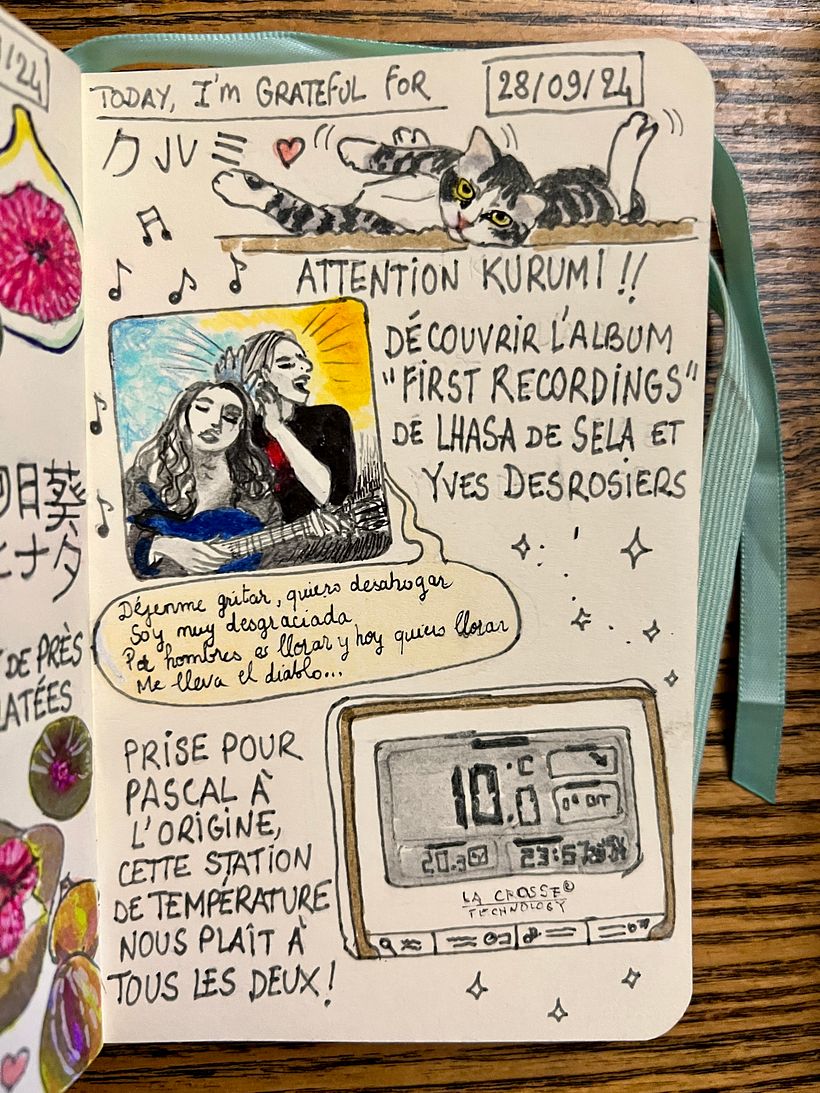 /24
TODAY, I'M GRATEFUL FOR
28/09/24
クルミ
ATTENTION KURUMI !!
DÉCOUVRIR L'ALBUM
"FIRST RECORDINGS"
DE LHASA DE SELA ET
YVES DESROSIERS
日葵
ナタ
DE PRÈS
LATÉES
Déjenme gritar, quiero desahogar
Soy muy desgraciada
Pa hombres es llorar y hoy quiero llorar
Me lleva el diablo...
PRISE POUR
PASCAL À
L'ORIGINE,
CETTE STATION
DE TEMPÉRATURE
NOUS PLAÎT À
TOUS LES DEUX!
10.0 °C
20.3
23:57
LA CROSSE®
TECHNOLOGY